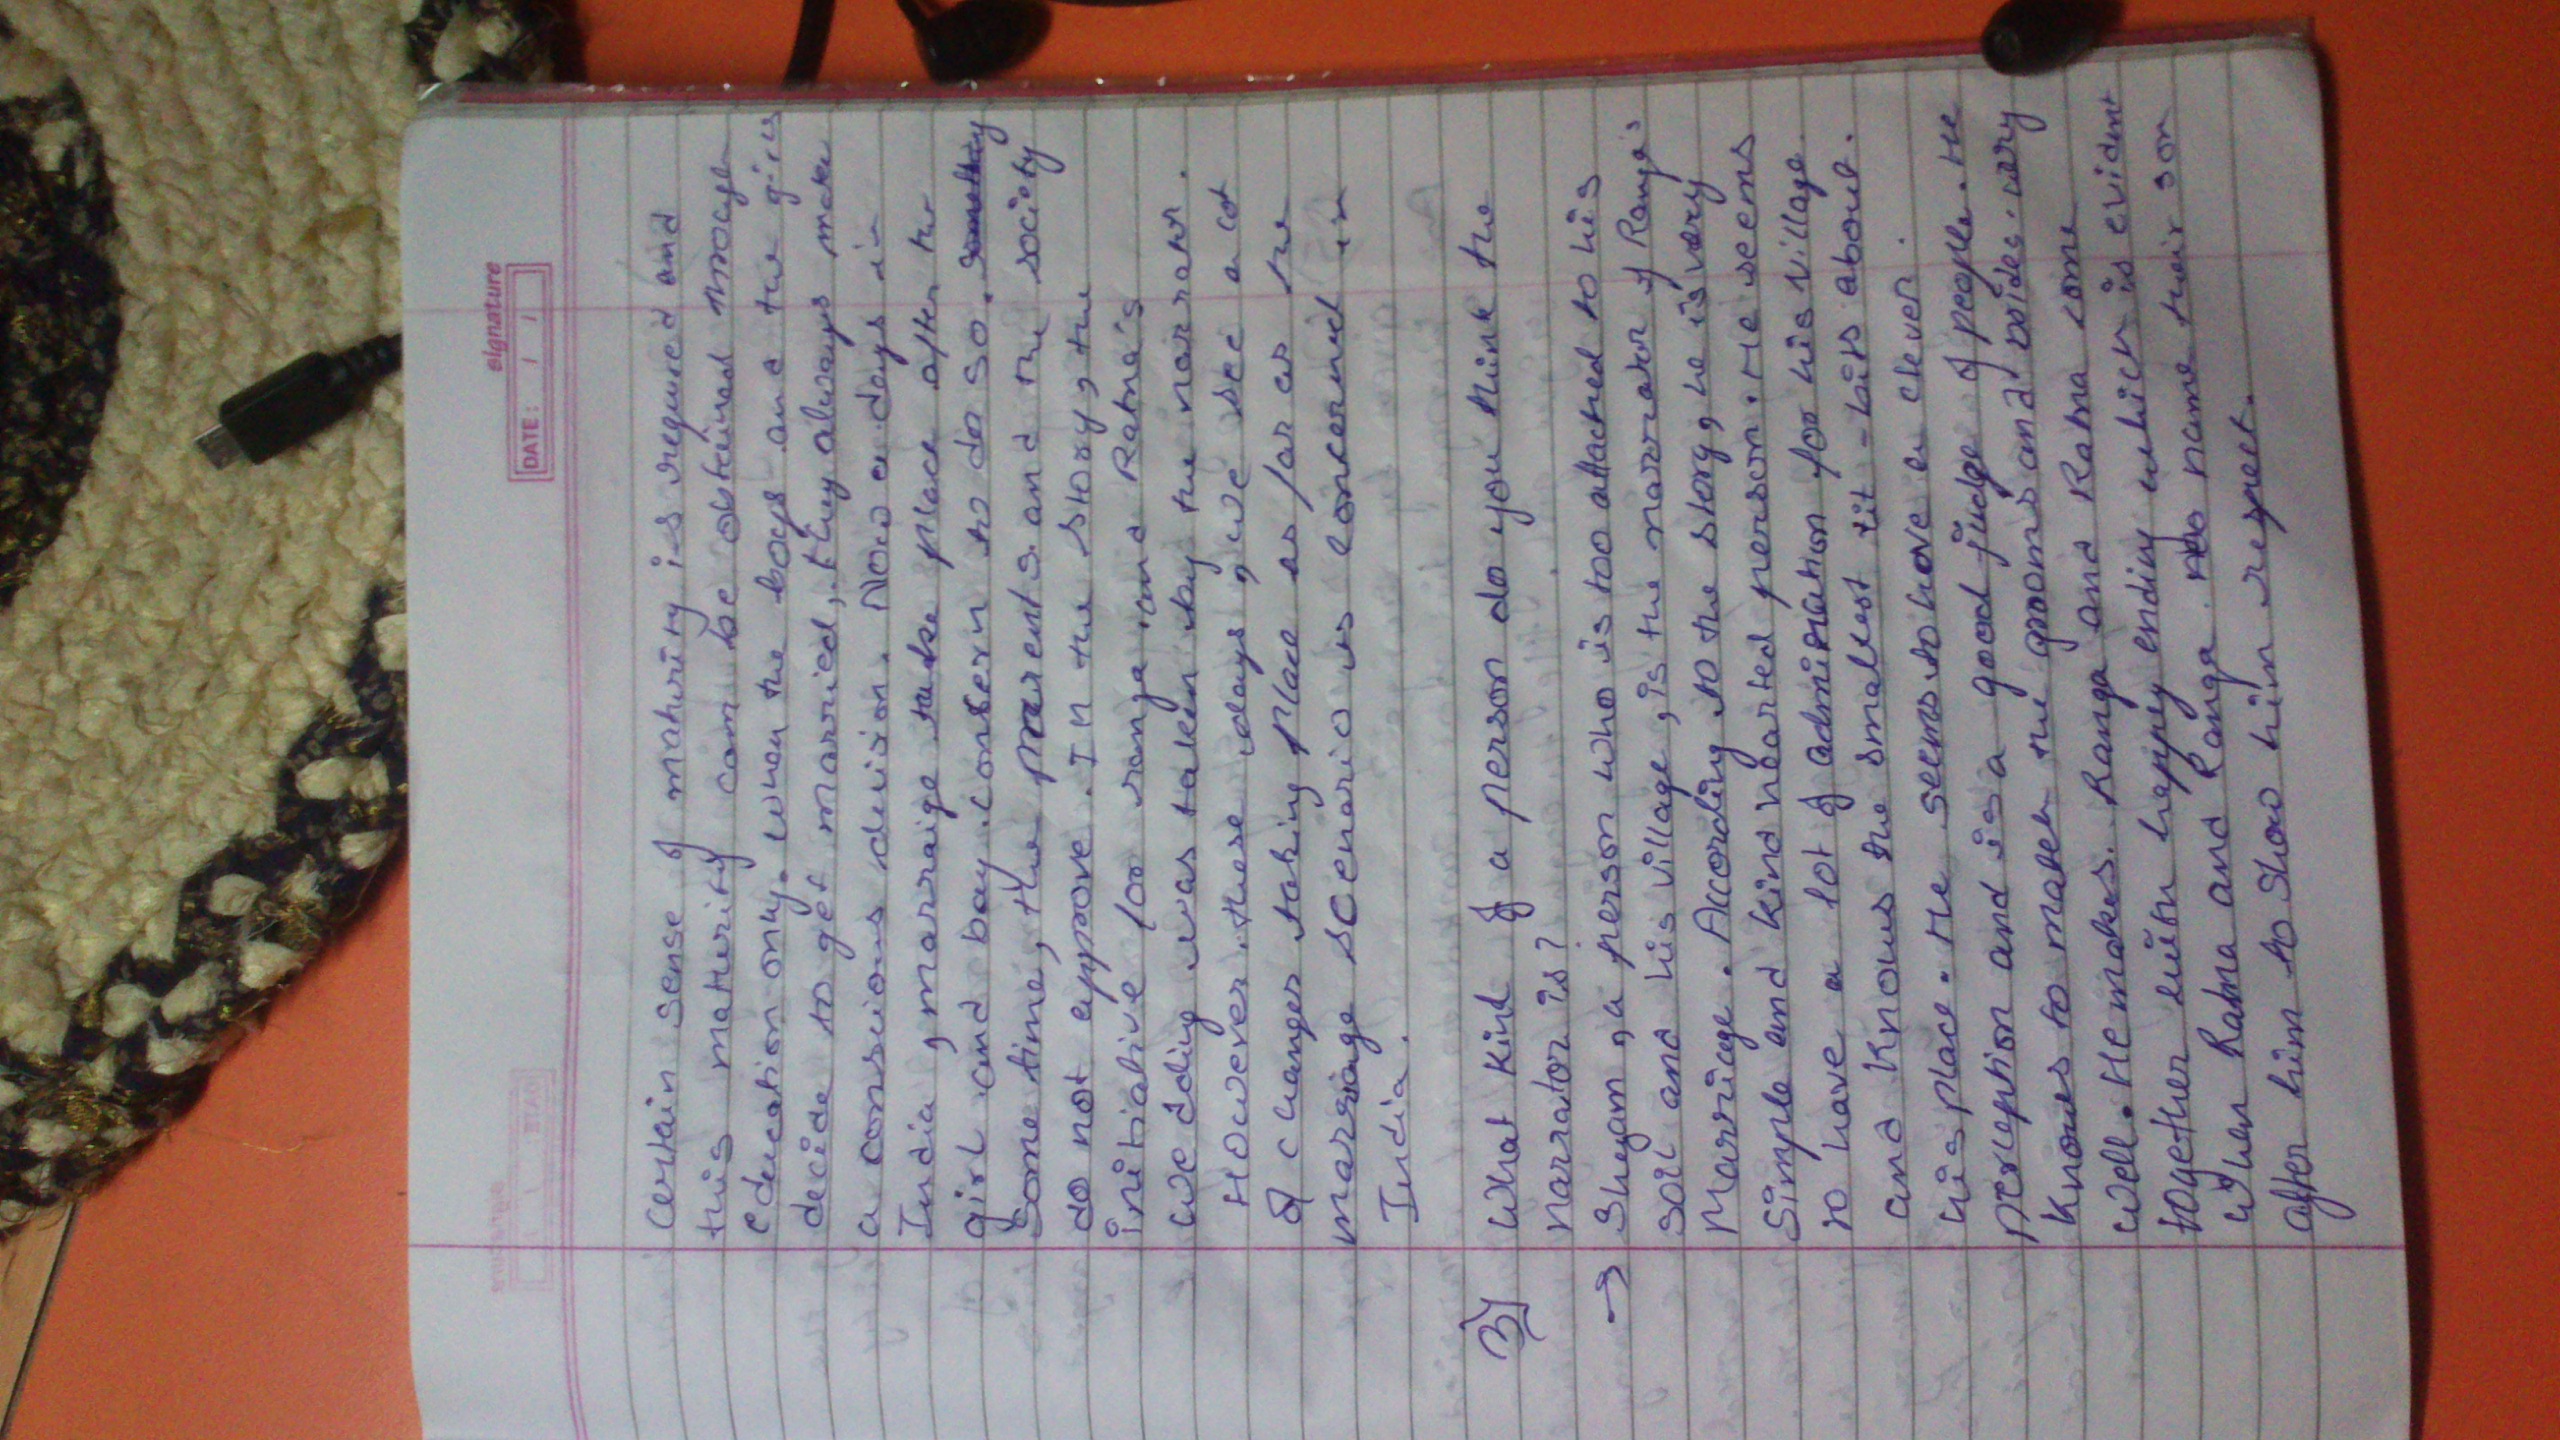 signature
DATE: / /
certain sense of maturity is required and
this maturity can be obtained through
education only. When the boys and the girls
decide to get married, they always make
a conscious decision. Now a days in
India, marraige take place after the
girl and boy consern to do so. something
some time, the parents and the society
do not approve. In the story, the
initiative for ranga and Ratna's
wedding was taken by the narrator.
However these days, we see a lot
of changes taking place as far as the
marriage scenario is concerned in
India.
3) What kind of a person do you think the
narrator is?
→ Shyam, a person who is too attached to his
soil and his village, is the narrator of Ranga's
Marriage. According to the story, he is very
simple and kind hearted person. He seems
to have a lot of admiration for his village
and knows the smallest tit-bits about
his place. He seems to have a clever
perception and is a good judge of people. He
knows to match the grooms and brides very
well. He makes Ranga and Ratna come
together with happy ending which is evident
when Ratna and Ranga name their son
after him to show him respect.